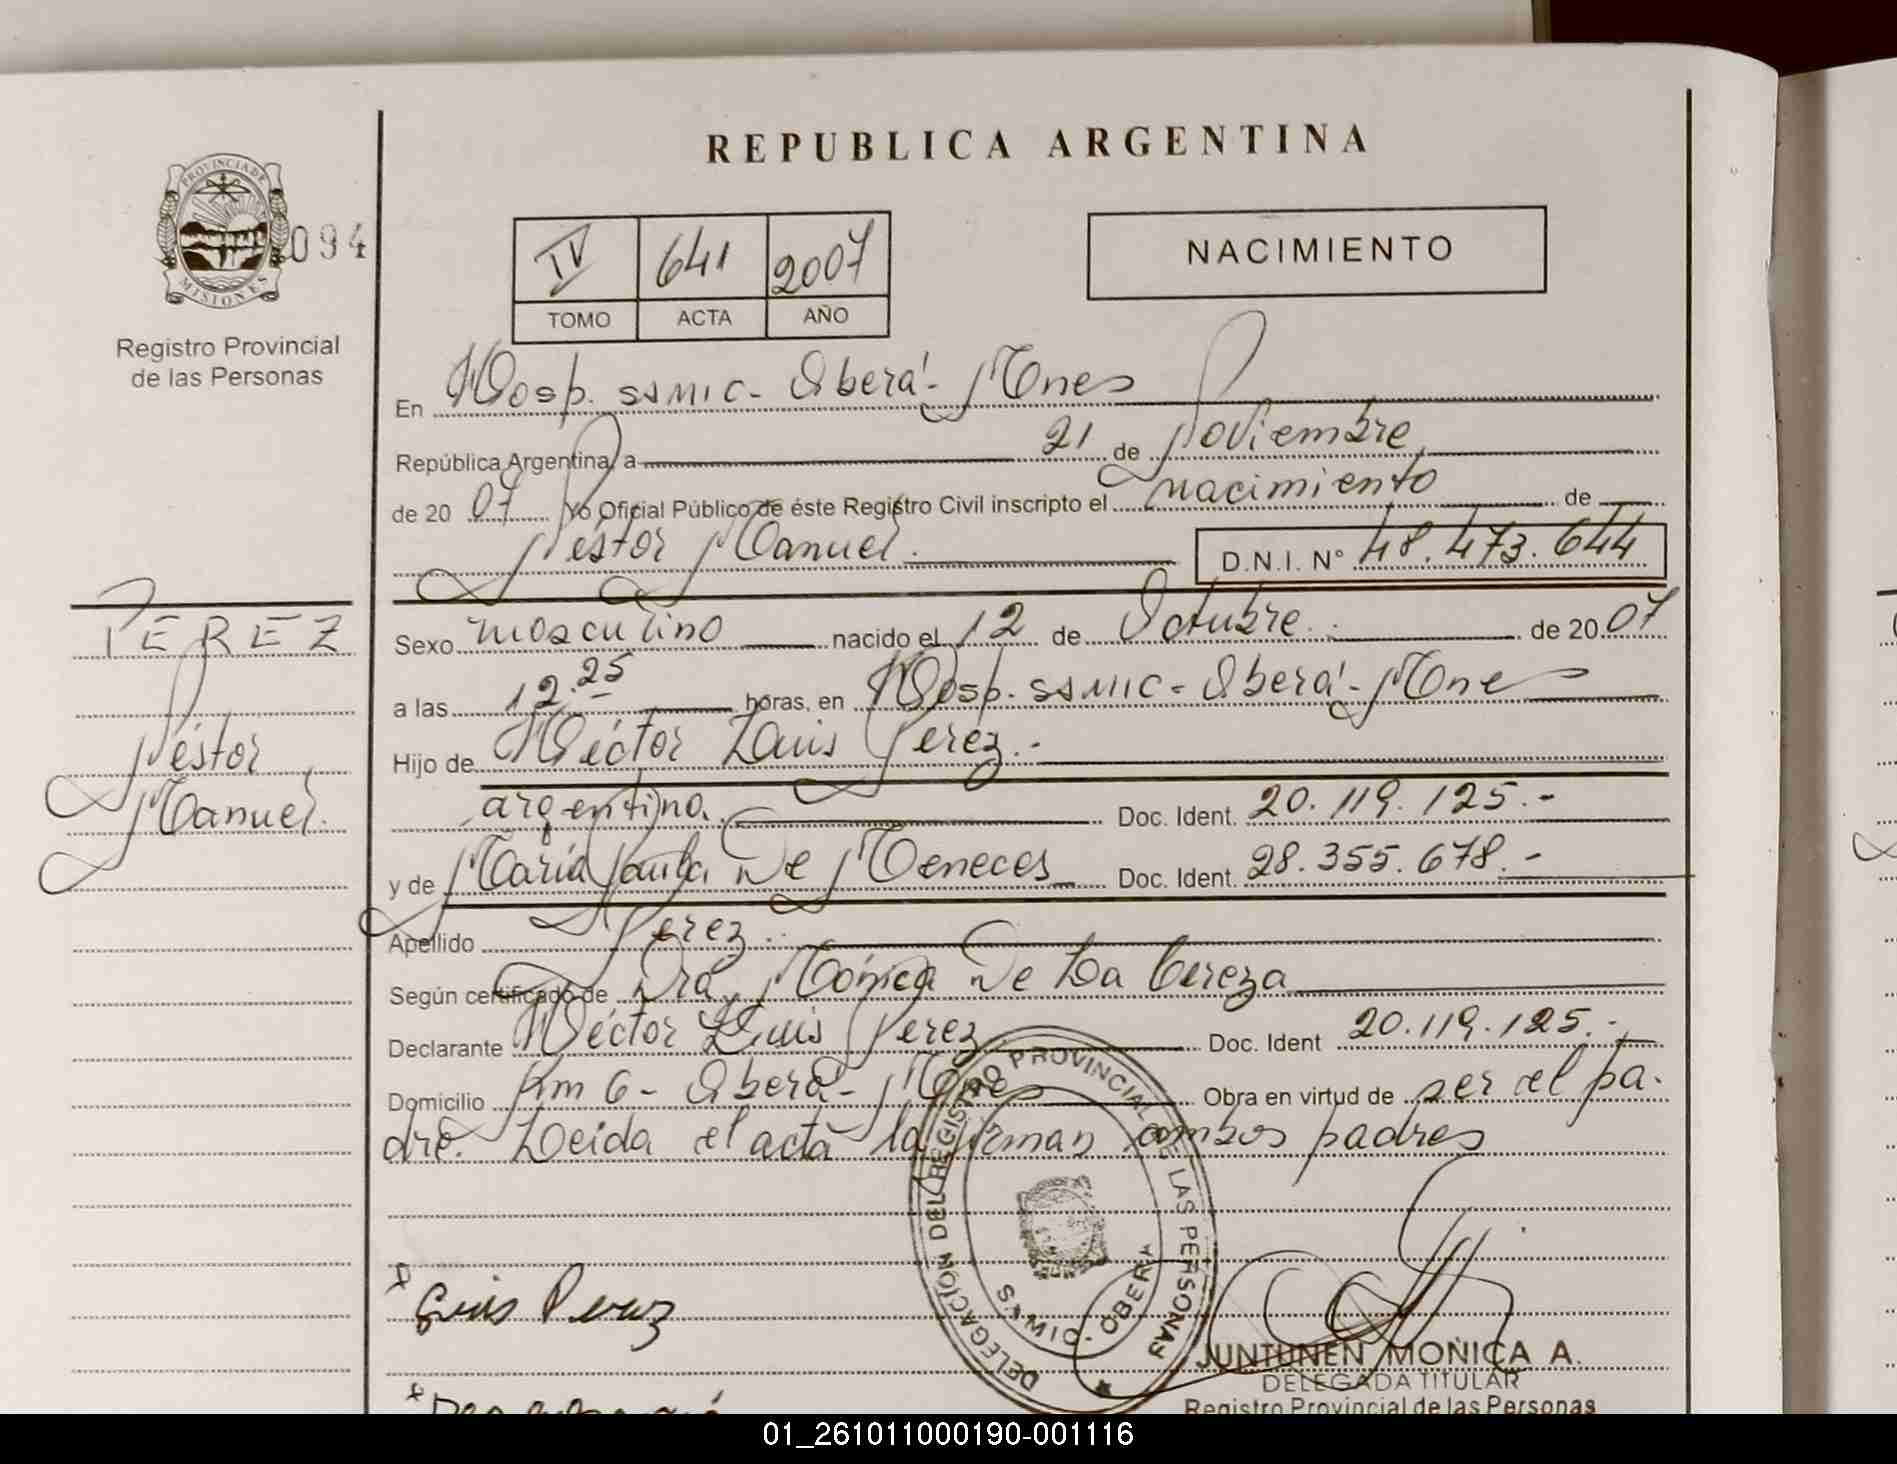 REPUBLICA ARGENTINA
PROVINCIA DE
MISIONES
094
Registro Provincial
de las Personas
IV 641 2007
TOMO ACTA AÑO
NACIMIENTO
En Hosp. SAMIC - Oberá - Mnes
República Argentina, a 21 de Noviembre
de 2007 Yo Oficial Público de éste Registro Civil inscripto el nacimiento de
Néstor Manuel. D.N.I. Nº 48.473.644
PEREZ
Néstor
Manuel.
Sexo masculino nacido el 12 de Octubre. de 2007
a las 12.25 horas, en Hosp. SAMIC - Oberá - Mnes
Hijo de Héctor Luis Perez.-
argentino. Doc. Ident. 20.119.125.-
y de María Paula De Meneces Doc. Ident. 28.355.678.-
Apellido Perez.
Según certificado de Dra. Mónica De La Cereza
Declarante Héctor Luis Perez Doc. Ident 20.119.125.-
Domicilio Km 6 - Oberá - Mnes Obra en virtud de ser el pa-
dre. Leida el acta la firman ambos padres
DELEGACIÓN DEL REGISTRO PROVINCIAL DE LAS PERSONAS
SAMIC - OBERA
Luis Perez
JUNTUNEN MONICA A.
DELEGADA TITULAR
Registro Provincial de las Personas
01_261011000190-001116